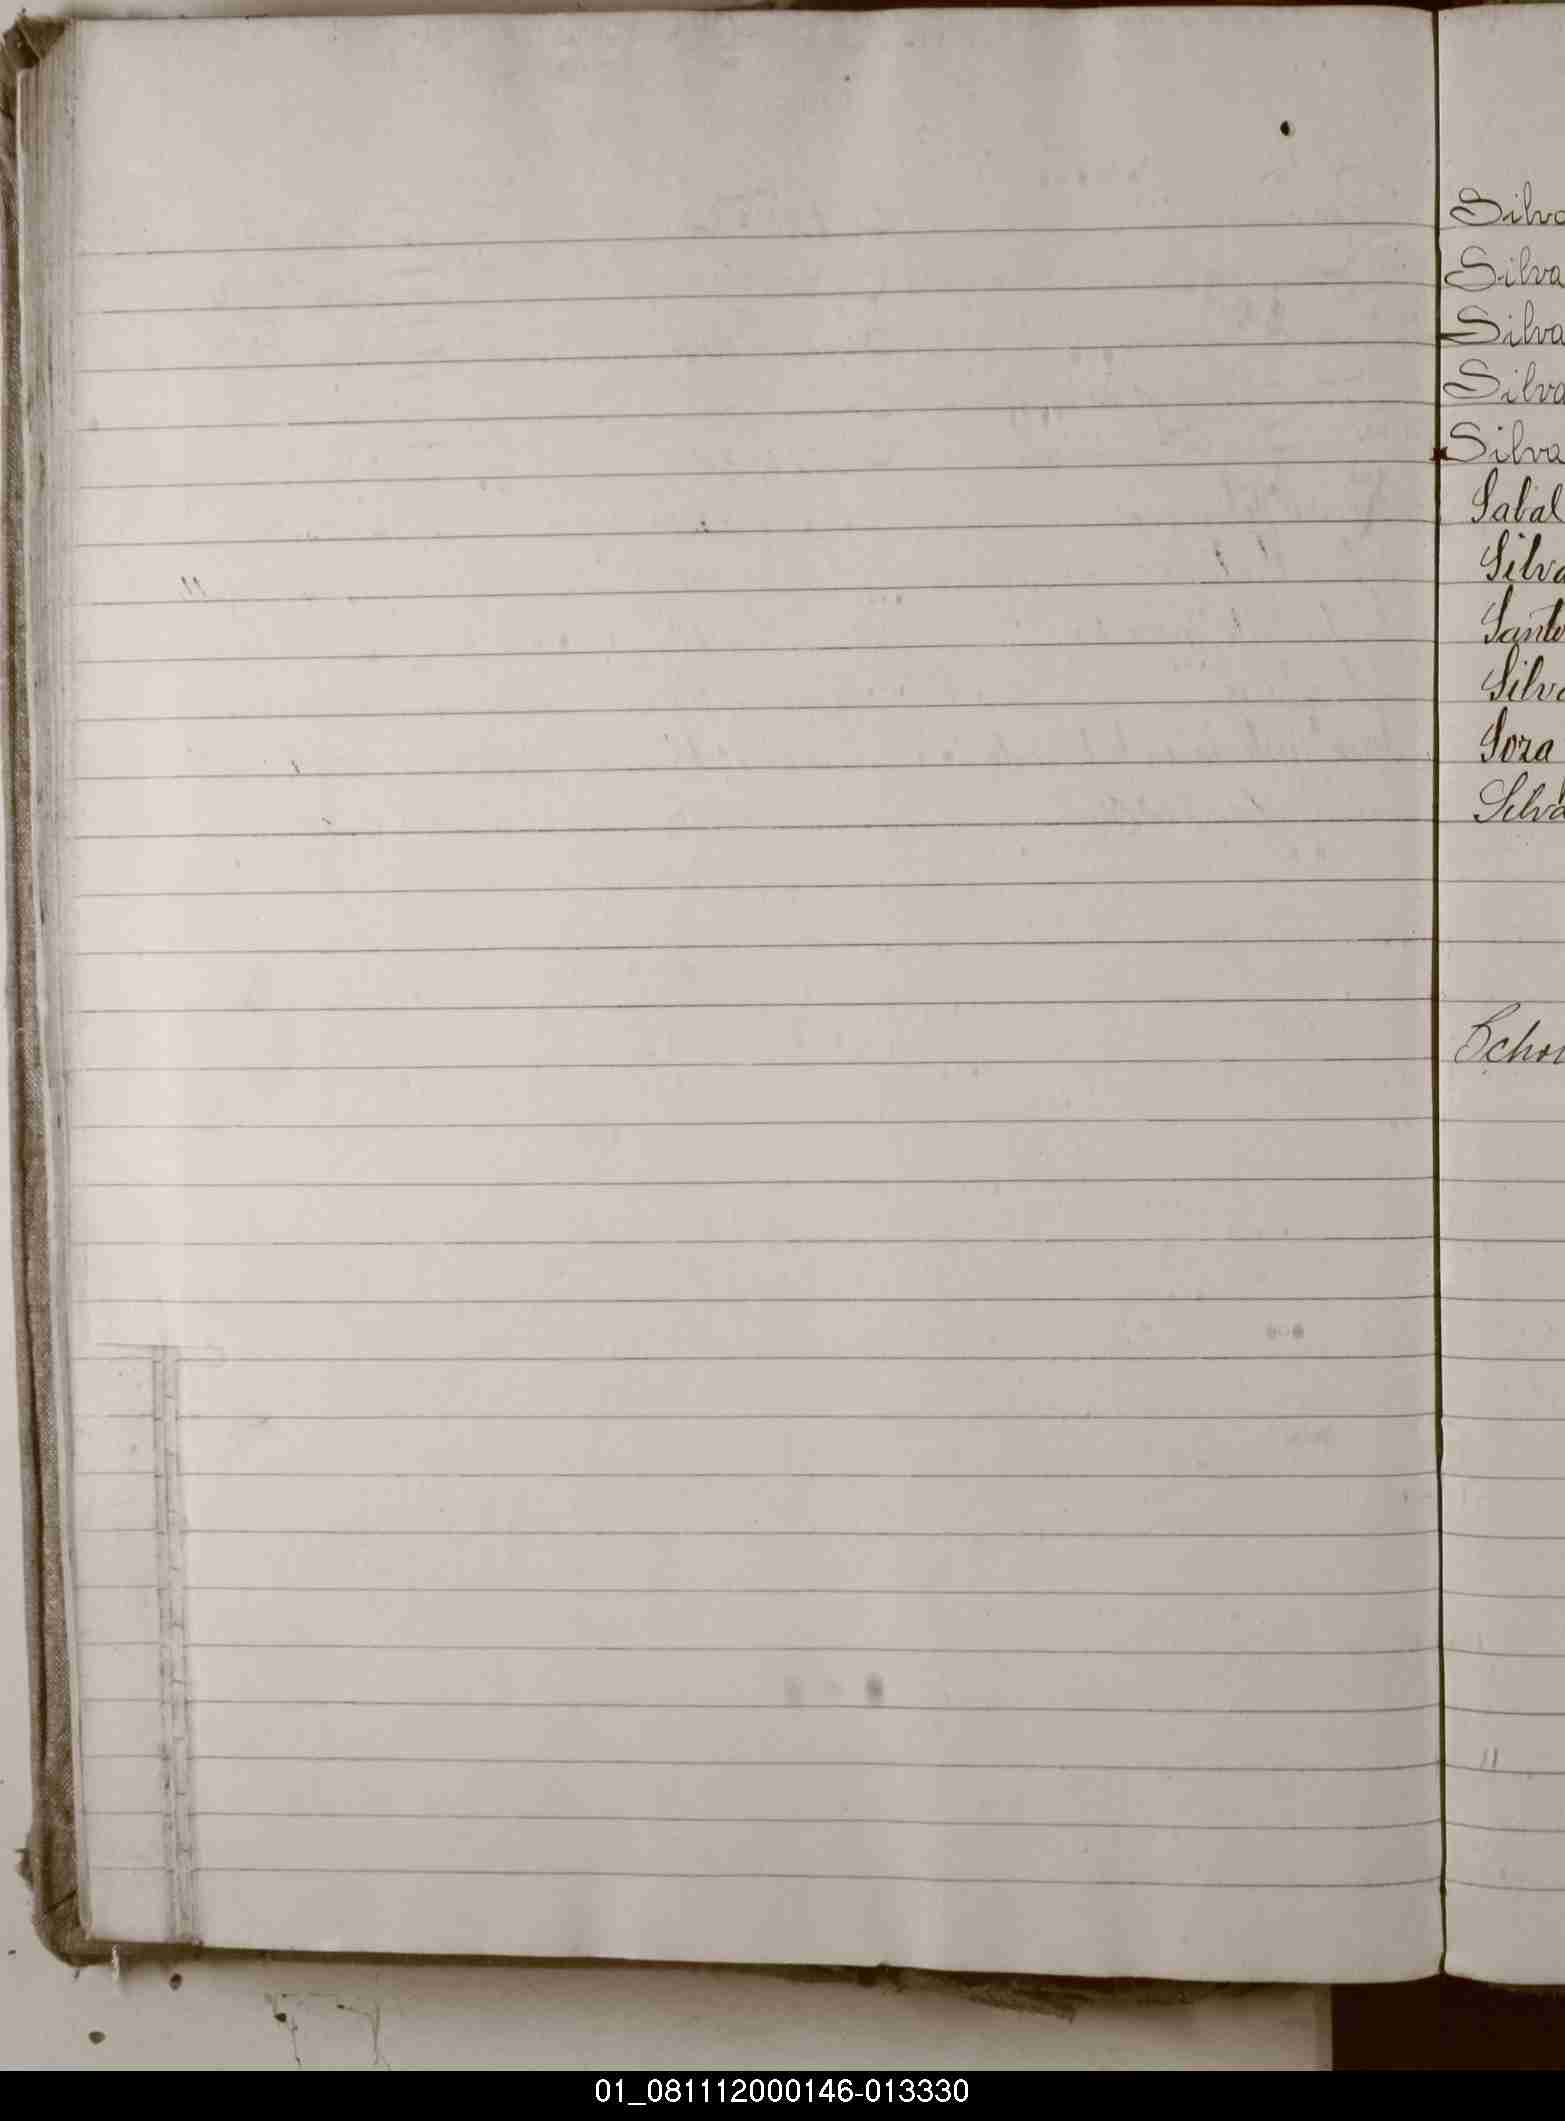 Silva
Silva
Silva
Silva
Silva
Sabal
Silva
Santo
Silva
Soza
Silva
01_081112000146-013330